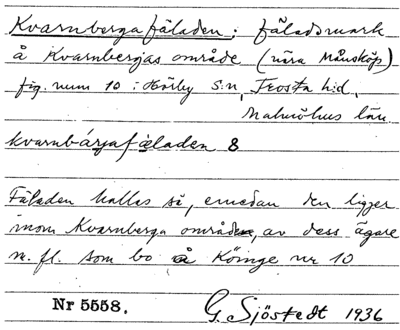 Kvarnberga fäladen: fäladsmark
å Kvarnbergas område (nära Månsköp)
fig. num 10 i Hörby s:n, Frosta hd.
Malmöhus län.
kvarnbárjafäladen 8
Fäladen kallas så, emedan den ligger
inom Kvarnberga område, av dess ägare
m. fl. som bo å Köinge nr 10
Nr 5558.
G. Sjöstedt 1936